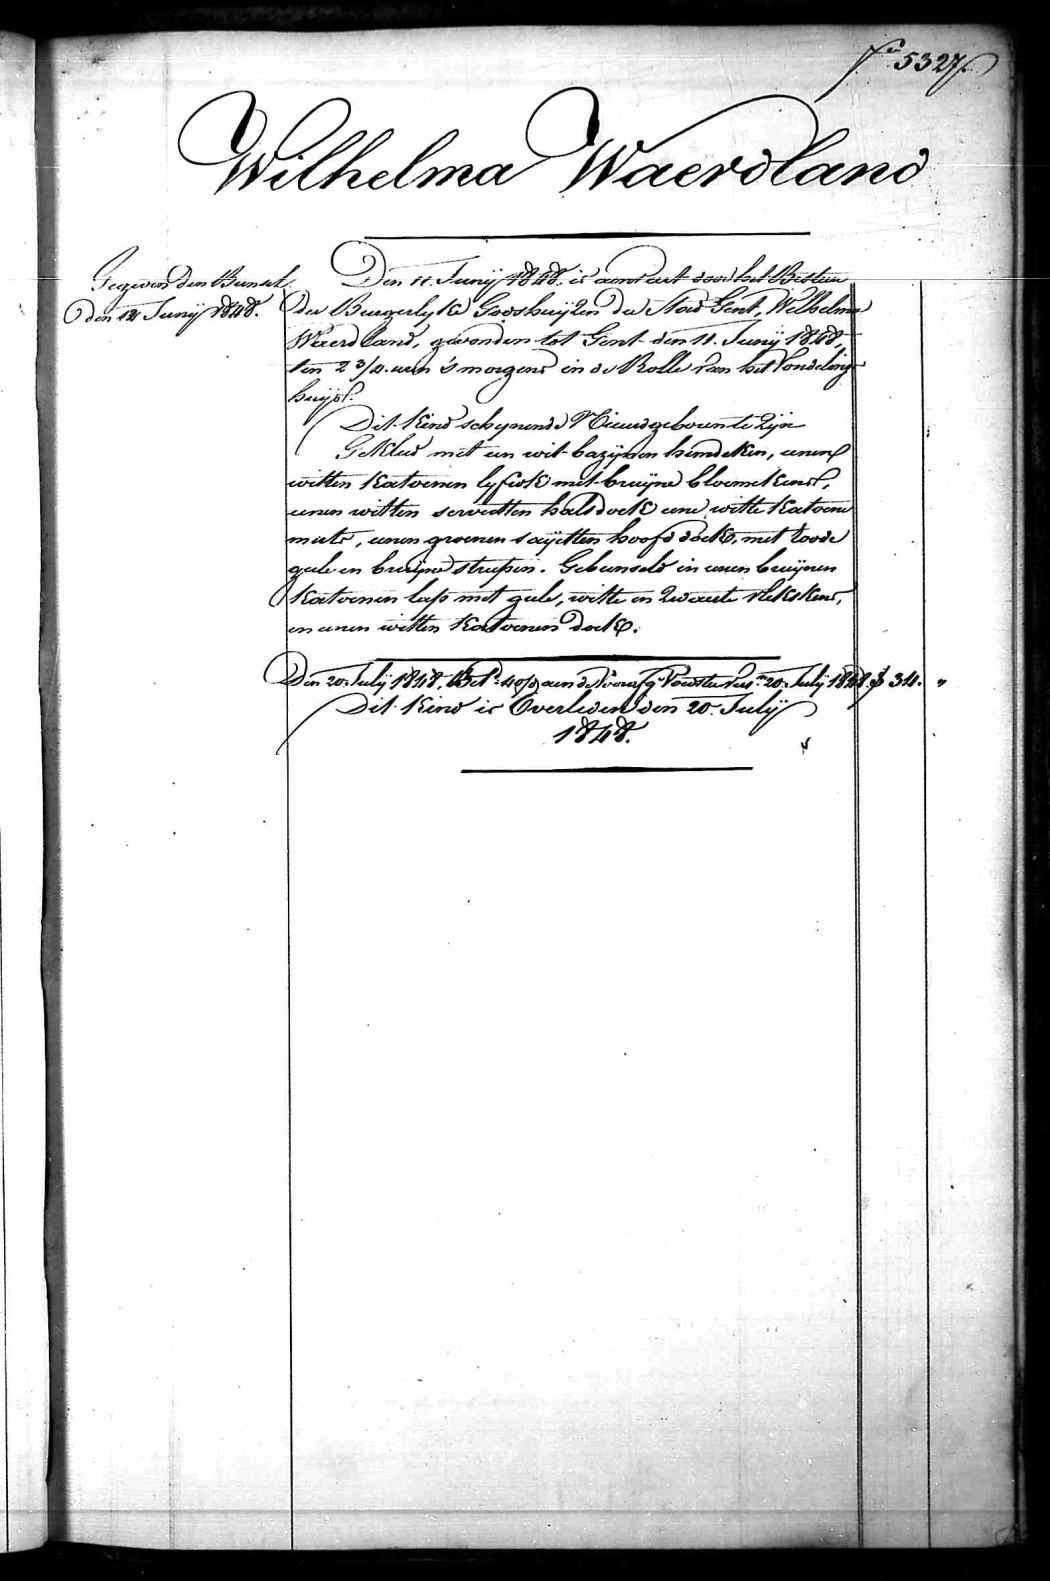 Nº 5327.
Wilhelma Waerdland
Gegeven den Bunsel
den 12 Junij 1848.
Den 11 Junij 1848. is aenveert door het Bestier
der Burgerlyke Godshuijzen der Stad Gent, Wilhelma
Waerdland, gevonden tot Gent den 11. Junij 1848,
ten 2 3/4 uren 's morgens in de Rolle van het Vondeling-
huijs.
Dit kind schynende Nieuwgeboren te Zijn
Gekleed met een wit bazijnen hemdeken, eenen
witten katoenen lyfrok met bruijne bloemekens,
eenen witten servietten halsdoek eene witte katoene
muts, eenen groenen saijetten hoofddoek, met roode
geele en bruijne streepen. Gebunseld in eenen bruijnen
katoenen lap met geele, witte en Zwarte vlekskens,
en eenen witten katoenen doek.
Den 20. July 1848. Bet. 40 d aen de Voorz. Voedster ters. 20. July 1848. f 34. "
Dit kind is Overleden den 20. Julij
1848.